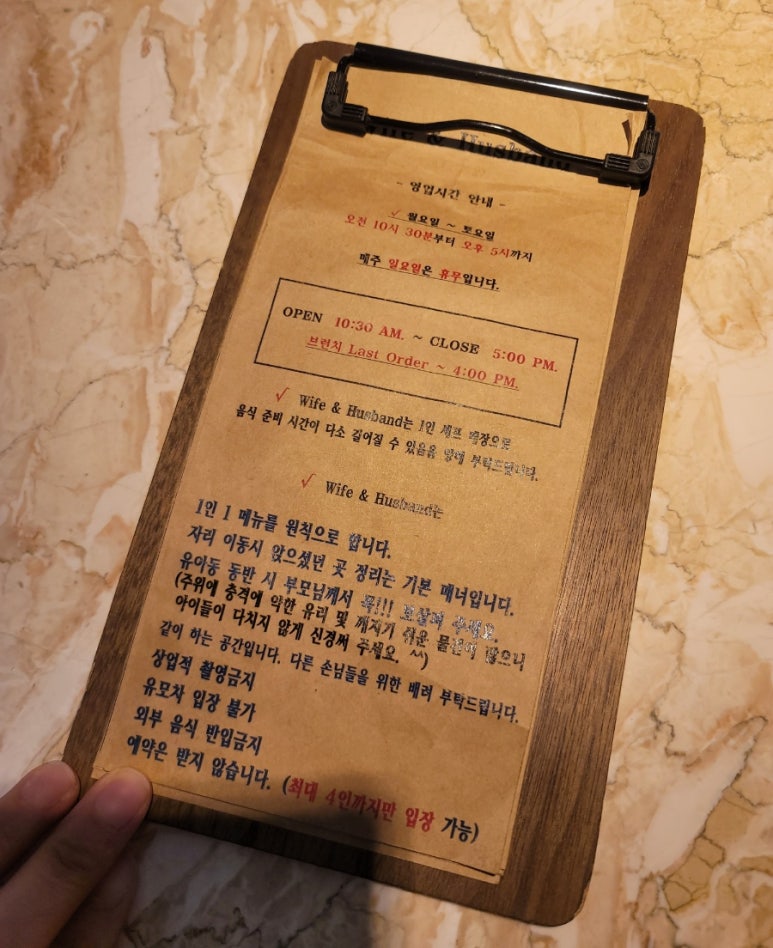 Wife & Husband
- 영업시간 안내 -
✓ 월요일 ~ 토요일
오전 10시 30분부터 오후 5시까지
매주 일요일은 휴무입니다.
OPEN 10:30 AM. ~ CLOSE 5:00 PM.
브런치 Last Order ~ 4:00 PM.
✓ Wife & Husband는 1인 셰프 매장으로
음식 준비 시간이 다소 길어질 수 있음을 양해 부탁드립니다.
✓ Wife & Husband는
1인 1 메뉴를 원칙으로 합니다.
자리 이동시 앉으셨던 곳 정리는 기본 매너입니다.
유아동 동반 시 부모님께서 꼭!!! 보살펴 주세요.
(주위에 충격에 약한 유리 및 깨지기 쉬운 물건이 많으니
아이들이 다치지 않게 신경써 주세요. ^^)
같이 하는 공간입니다. 다른 손님들을 위한 배려 부탁드립니다.
상업적 촬영금지
유모차 입장 불가
외부 음식 반입금지
예약은 받지 않습니다. (최대 4인까지만 입장 가능)